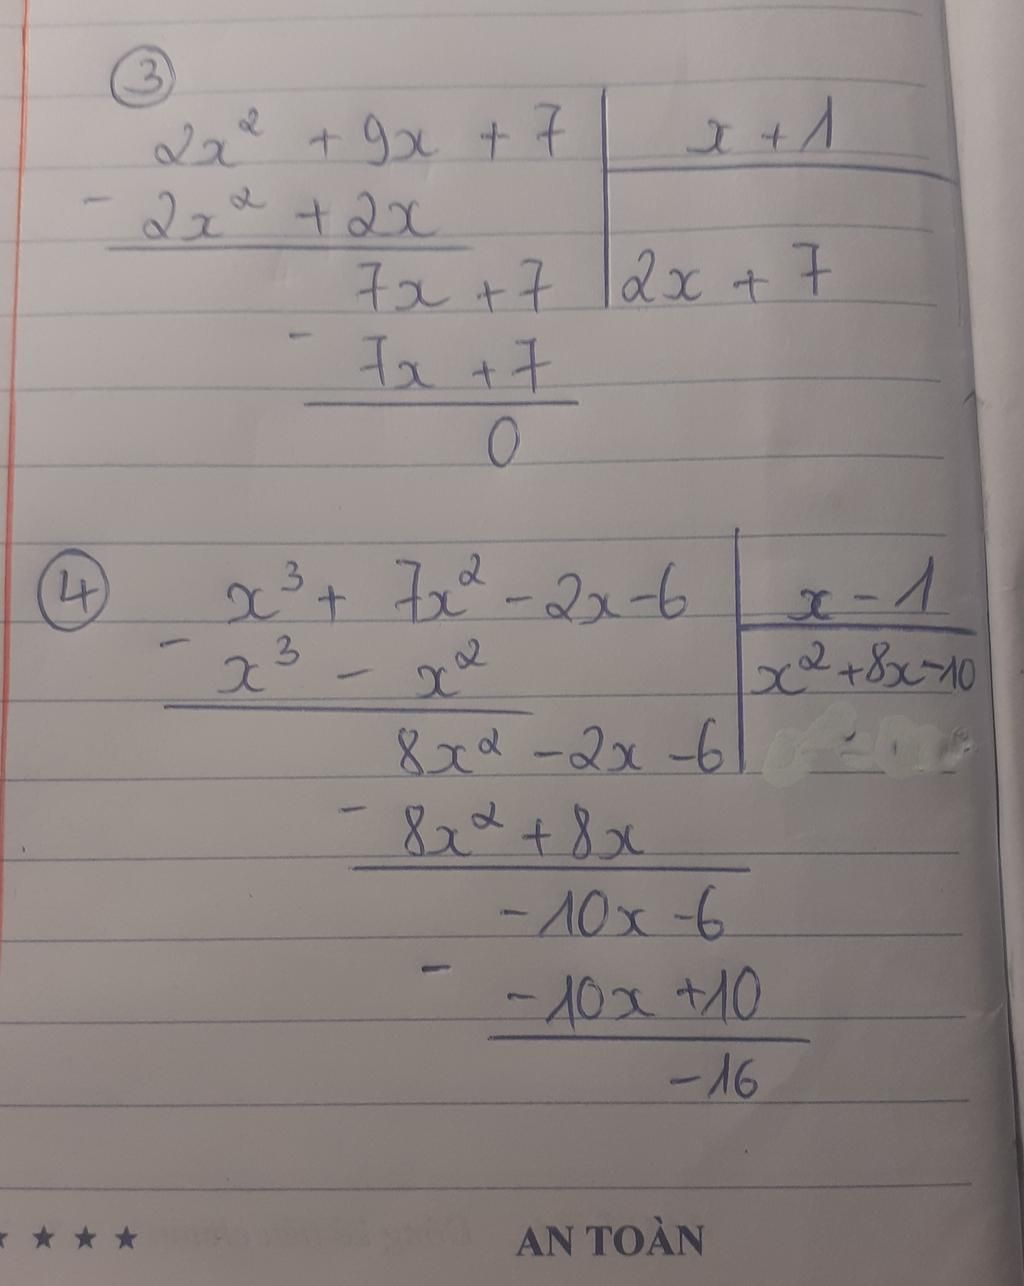 ③
2x² + 9x + 7 | x + 1
- 2x² + 2x
7x + 7 | 2x + 7
- 7x + 7
0
④ x³ + 7x² - 2x - 6 | x - 1
- x³ - x² | x² + 8x - 10
8x² - 2x - 6
- 8x² + 8x
-10x - 6
- -10x + 10
-16
★ ★ ★ AN TOÀN